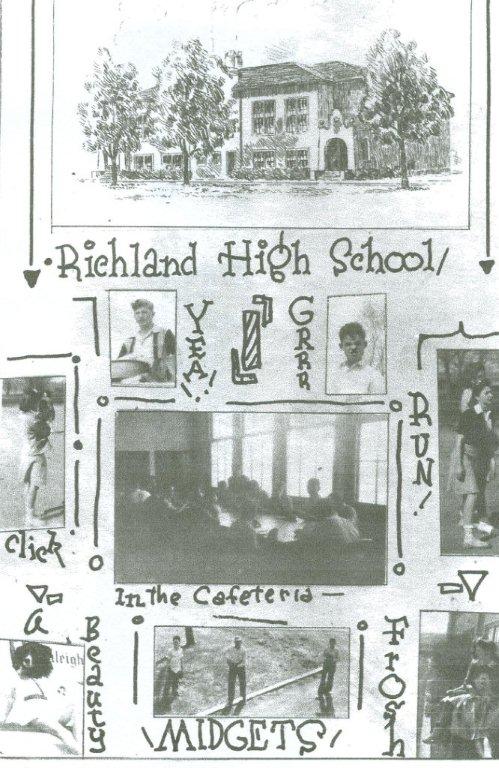 Richland High School!
YEA!!
GRRR
RUN!
Click
In the Cafeteria —
A
Beauty
aleigh
Frosh
MIDGETS!